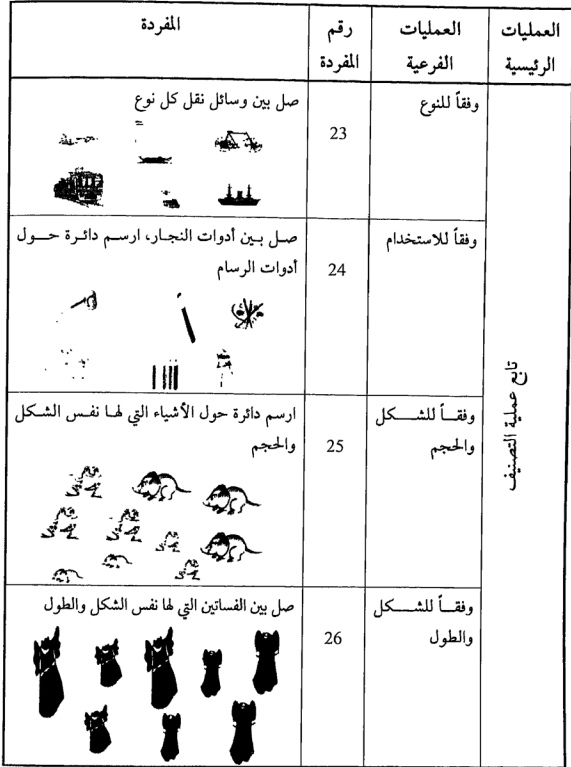 العمليات الرئيسية
العمليات الفرعية
رقم المفردة
المفردة
تابع عملية التصنيف
وفقاً للنوع
23
صل بين وسائل نقل كل نوع
وفقاً للاستخدام
24
صـل بـين أدوات النجـار، ارسـم دائـرة حـــول
أدوات الرسام
وفقــاً للشــــكل
والحجم
25
ارسم دائرة حول الأشياء التي لهـا نفـس الشـكل
والحجم
وفقــاً للشــــكل
والطول
26
صل بين الفساتين التي لها نفس الشكل والطول